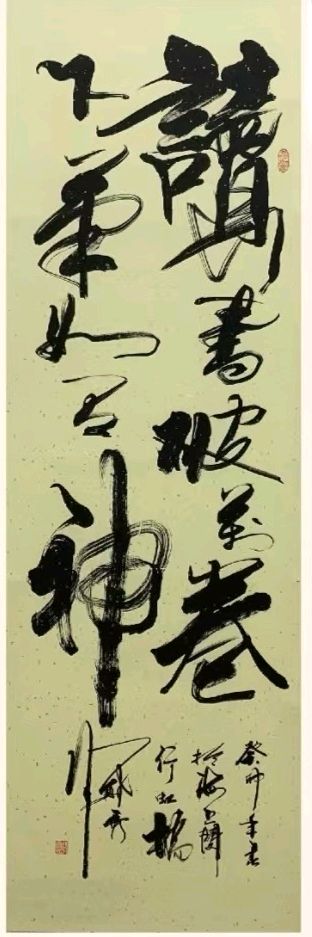 讀書破萬卷
下筆如有神
癸卯年書
於海上閔
行虹橋